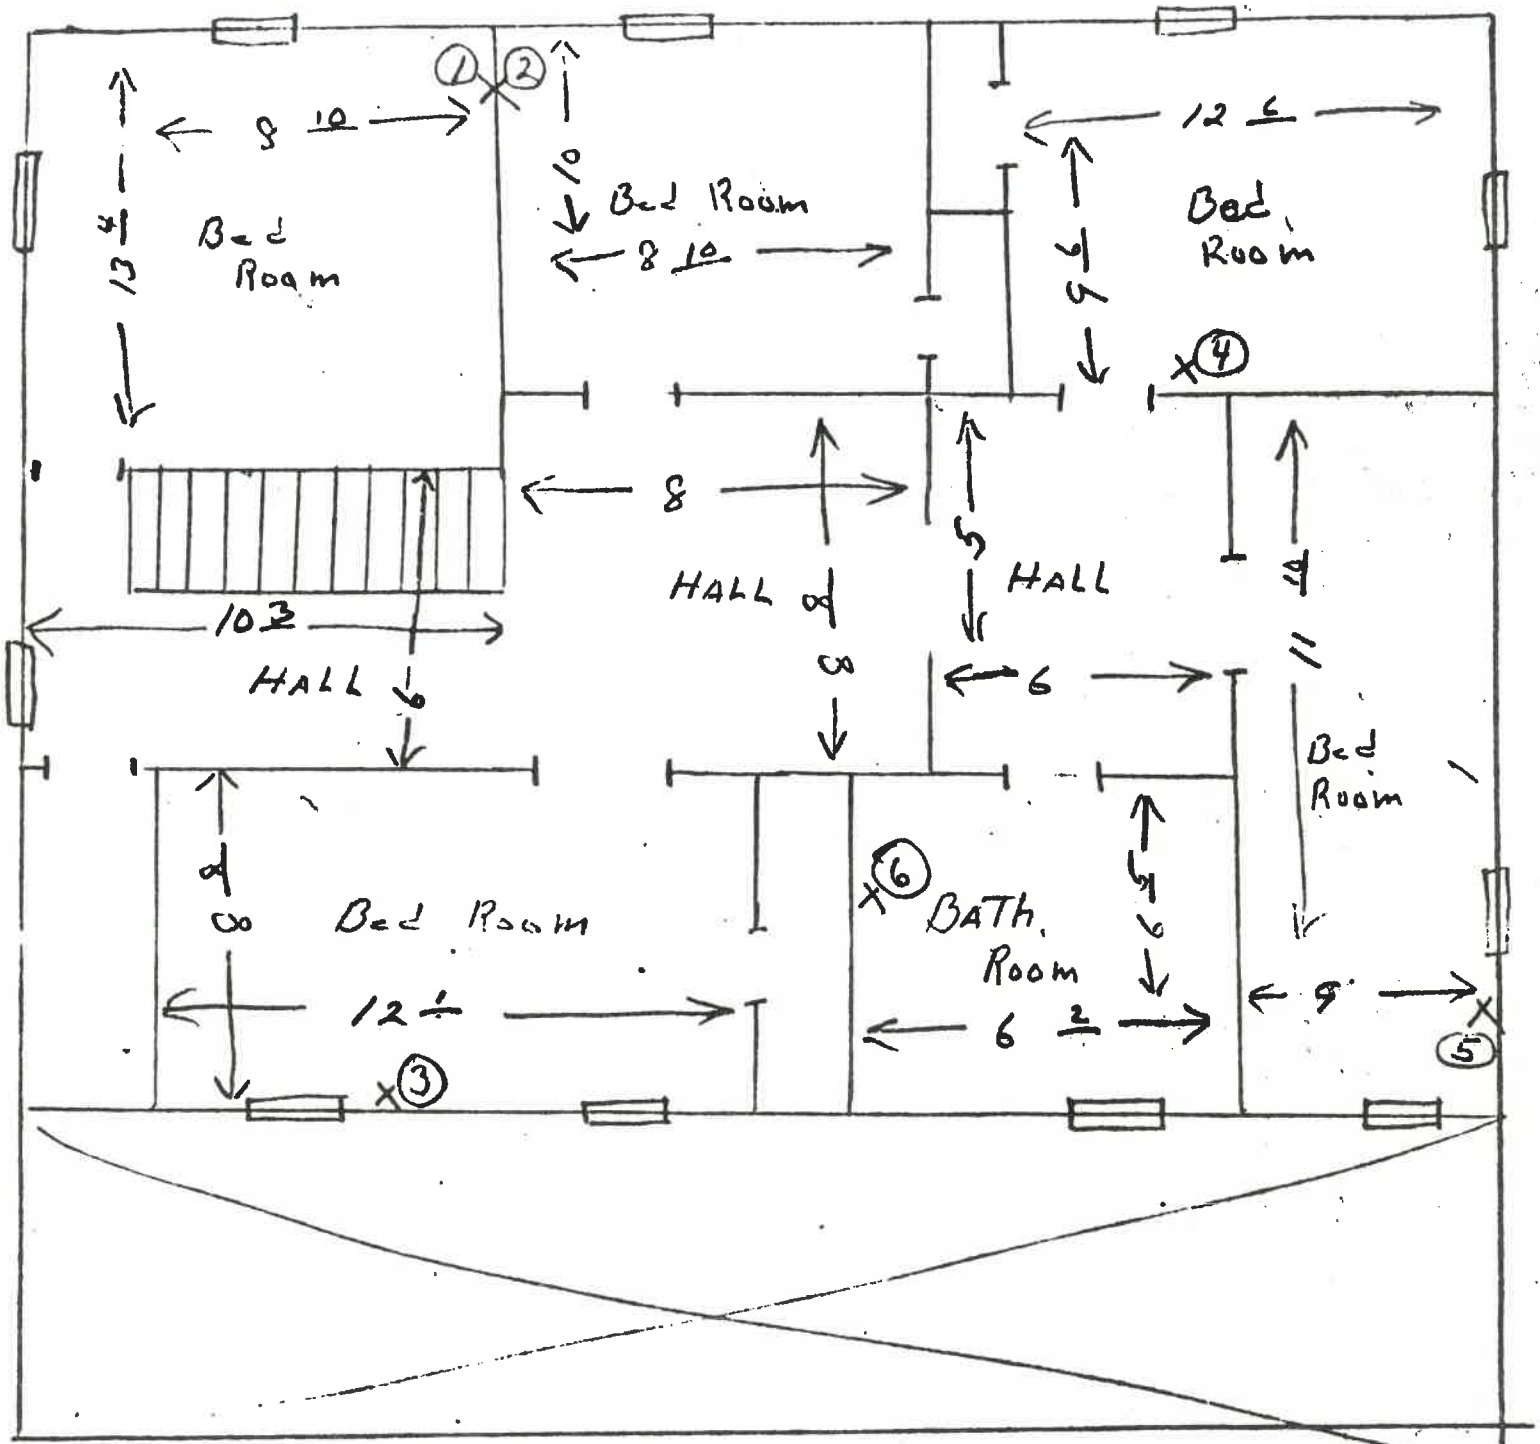 1
2
8 10
12 6
10
Bed Room
8 10
Bed
Room
13 4
Bed
Room
9 6
4
8
5
HALL
8 8
HALL
11 10
10 3
HALL
6
6
Bed
Room
8 8
Bed Room
6
BATH
Room
6 5
12 1
6 2
9
5
3